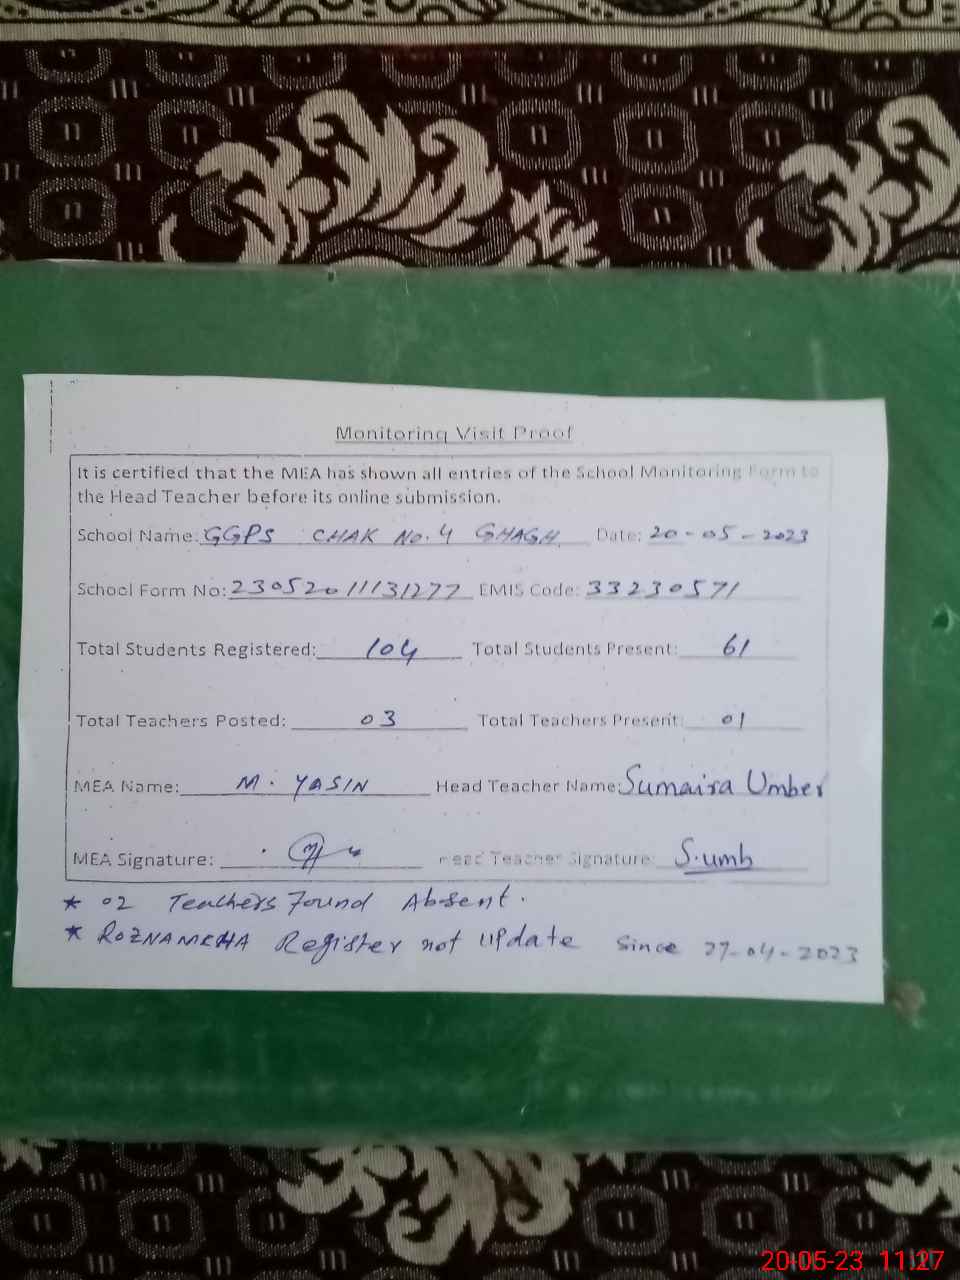 Monitoring Visit Proof
It is certified that the MEA has shown all entries of the School Monitoring Form to
the Head Teacher before its online submission.
School Name: GGPS CHAK No. 4 GHAGH Date: 20-05-2023
School Form No: 23052011131277 EMIS Code: 33230571
Total Students Registered: 104 Total Students Present: 61
Total Teachers Posted: 03 Total Teachers Present: 01
MEA Name: M. YASIN Head Teacher Name: Sumaira Umber
MEA Signature: Head Teacher Signature: S.umb
* 02 Teachers Found Absent.
* ROZNAMCHA Register not update Since 27-04-2023
20-05-23 11:27